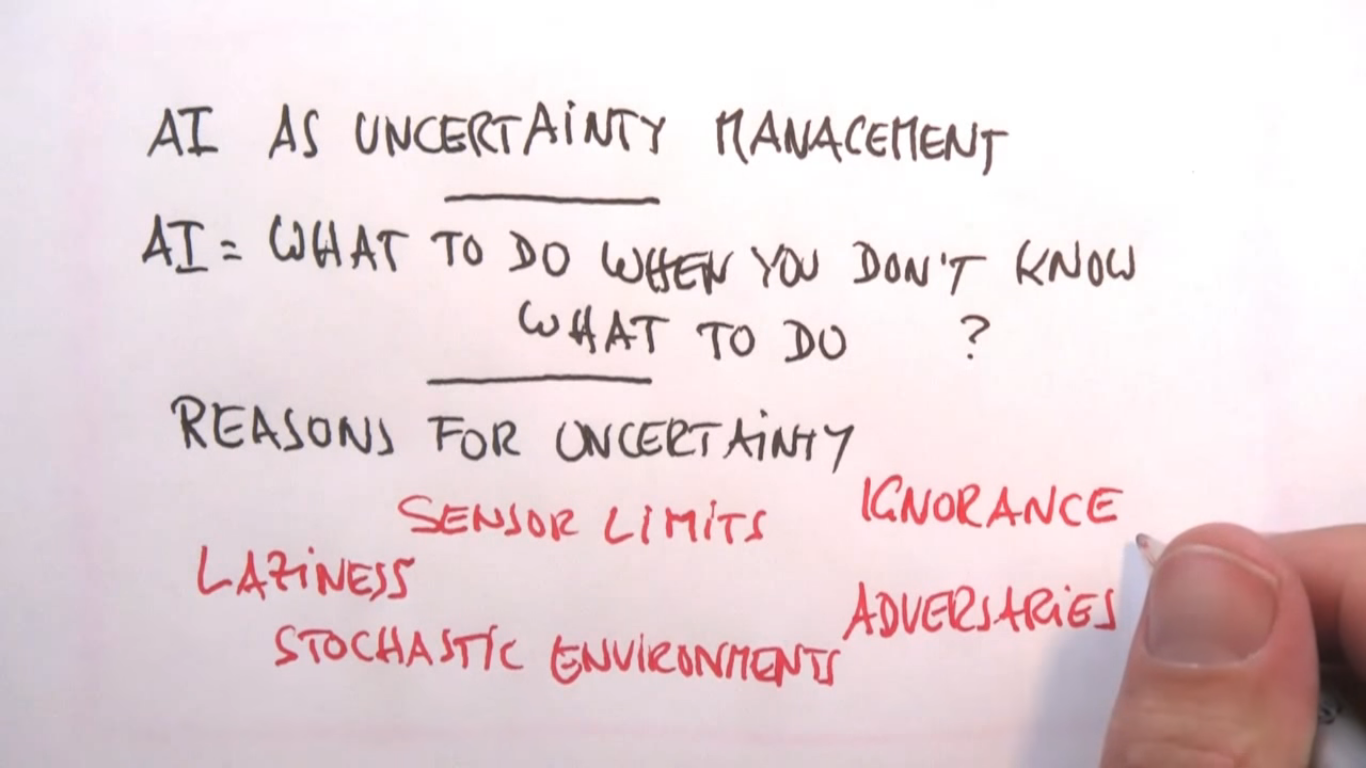 AI AS UNCERTAINTY MANAGEMENT
AI = WHAT TO DO WHEN YOU DON'T KNOW
WHAT TO DO ?
REASONS FOR UNCERTAINTY
SENSOR LIMITS IGNORANCE
LAZINESS ADVERSARIES
STOCHASTIC ENVIRONMENTS